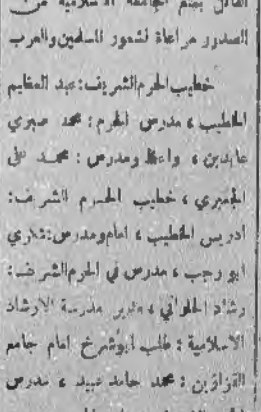 القائل بضم الجامعة الاسلامية من
الصدور مراعاة لشعور المسلمين والعرب
خطيب الحرم الشريف: عبد العظيم
الخطيب، مدرس الحرم: محمد صبري
عابدين، واعظ ومدرس: محمد علي
الجعبري، خطيب الحرم الشريف:
ادريس الخطيب، امام ومدرس: شكري
ابو رجب، مدرس في الحرم الشريف:
رشاد الحلواني، مدير مدرسة الارشاد
الاسلامية: طلب ابو شرخ امام جامع
القزازين: محمد حامد عبيد، مدرس